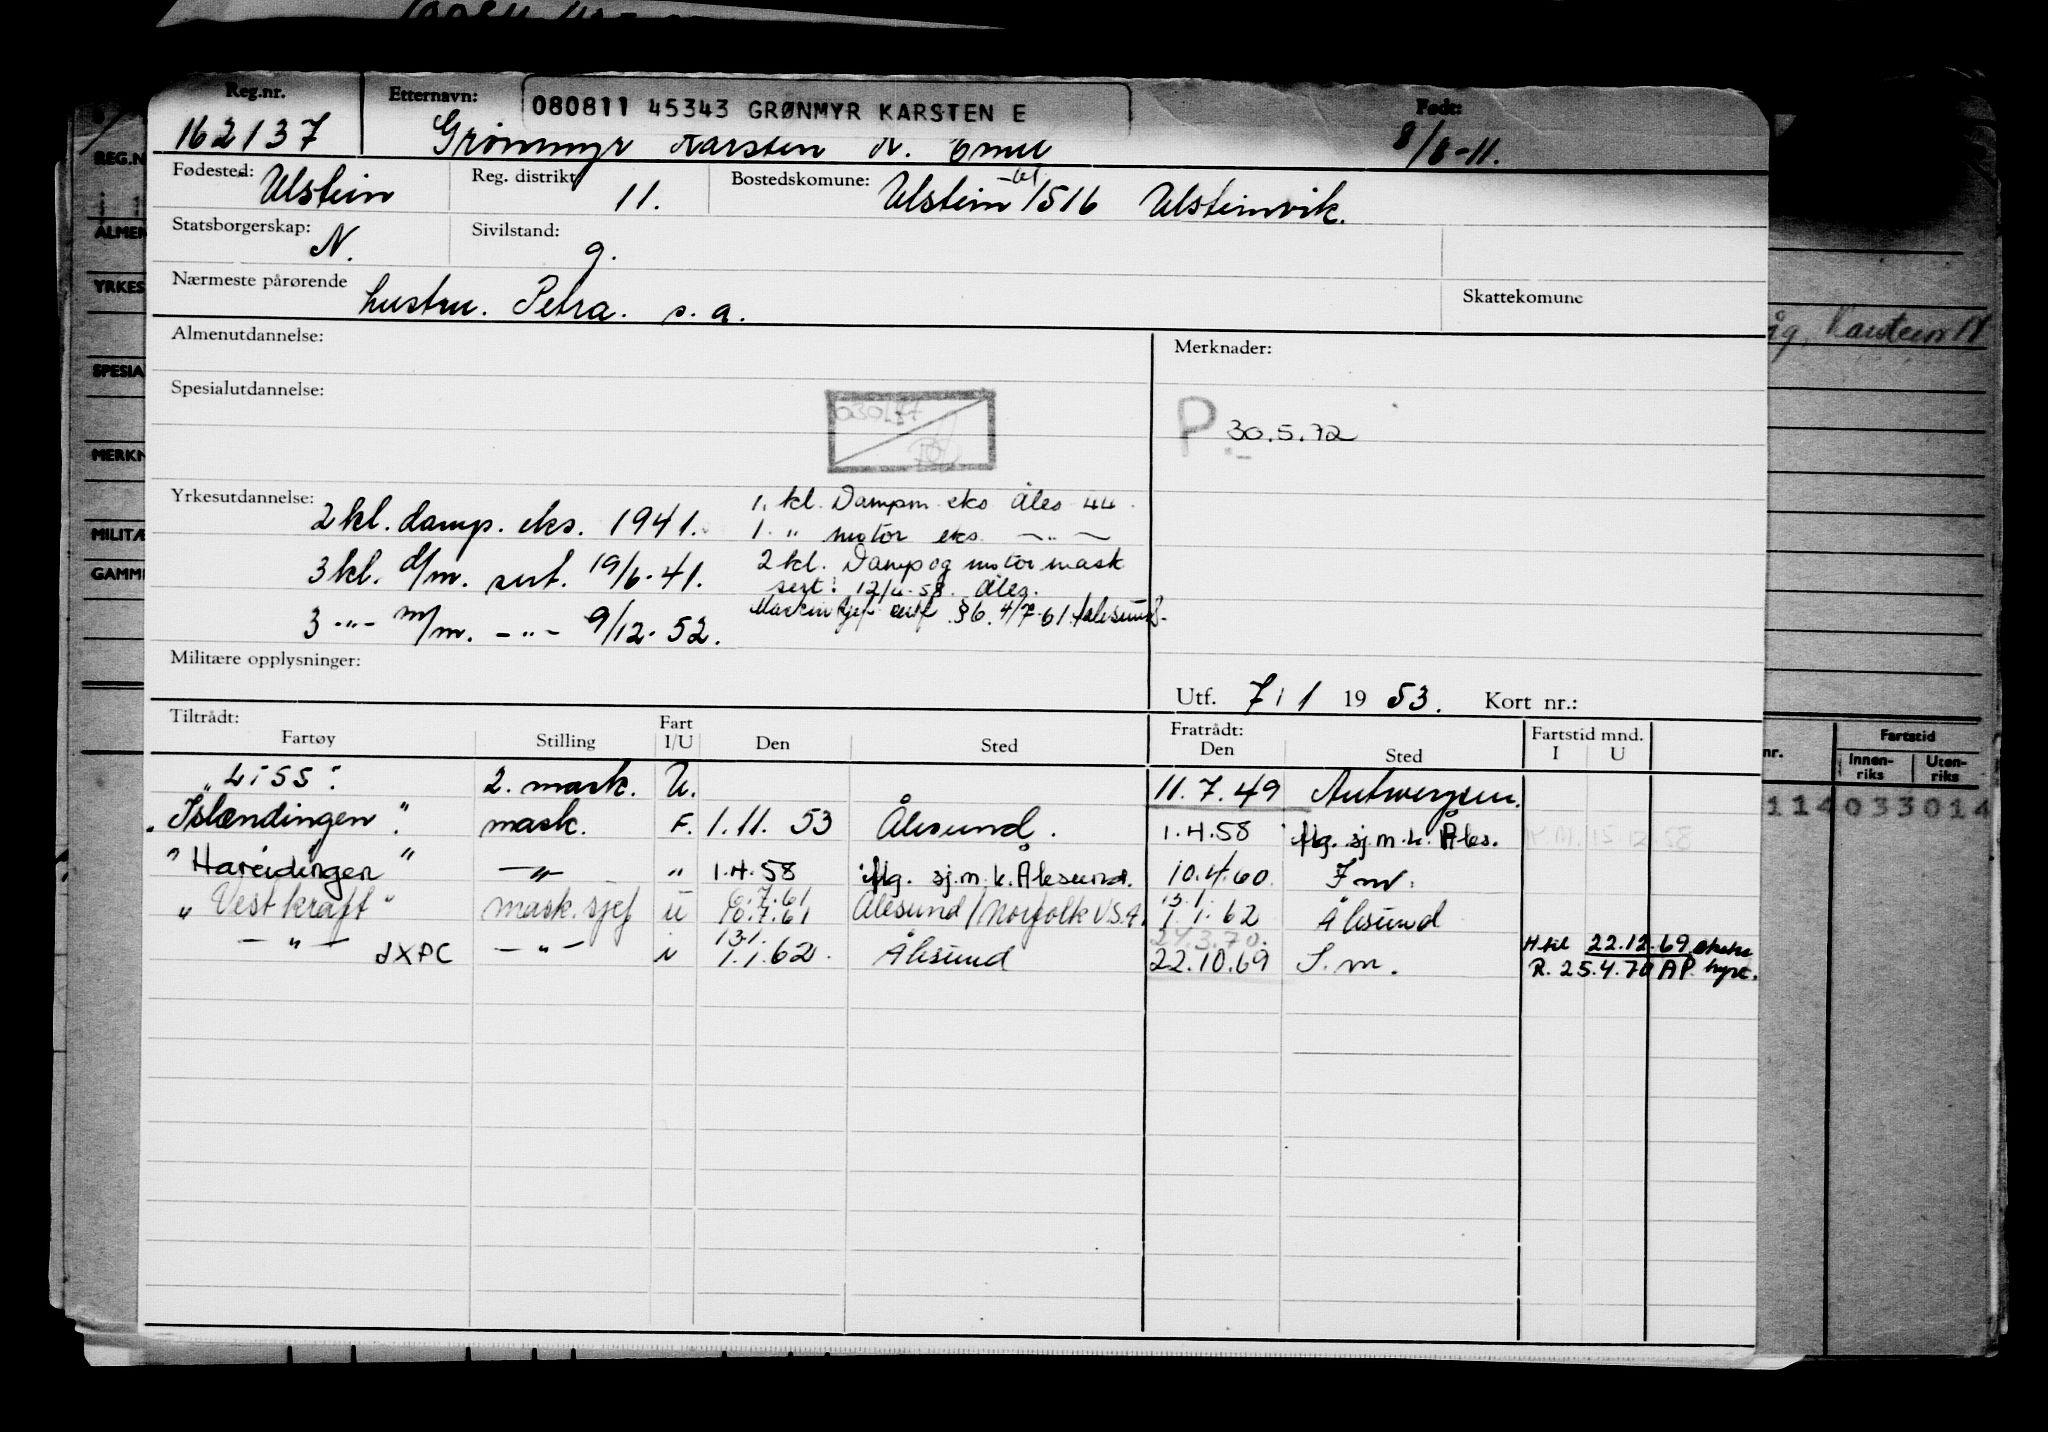 Reg.nr. Etternavn: 080811 45343 GRØNMYR KARSTEN E Født:
162137 Grönmyr Karsten N. Emil 8/8-11.
Fødested: Ulstein Reg. distrikt 11. Bostedskomune: Ulstein 1516 Ulsteinvik.
Statsborgerskap: N. Sivilstand: g.
Nærmeste pårørende hustru. Petra. s. a. Skattekomune
Almenutdannelse: Merknader:
Spesialutdannelse:
P 30.5.72
Yrkesutdannelse: 2 kl. damp. eks. 1941. 1. kl. Dampm eks Åles 44.
1. " motor eks. — " —
3 kl. d/m. sert. 19/6-41. 2 kl. Damp og motor mask
sert: 12/4-58. Åles.
3 -"- m/m. -"- 9/12-52. Maskinsjef sertf §6. 4/7-61 Aalesund.
Militære opplysninger:
Utf. 7/1 1953. Kort nr.:
Tiltrådt: Fart Fratrådt: Fartstid mnd.
Fartøy Stilling I/U Den Sted Den Sted I U
"Liss". 2. mask. U. 11.7.49 Antwerpen.
"Islændingen". mask. F. 1.11.53 Ålesund. 1.4.58 flg. sj.m.k. Åles.
"Hareidingen" -"- " 1.4.58 flg. sj.m.k. Ålesund. 10.4.60. F.m.
6.7.61 13.1
"Vestkraft" mask.sjef u 10.7.61 Ålesund/Norfolk U.S.A. 1.1.62 Ålesund
13.1. 24.3.70. H til 22.12.69
-"- JXPC -"- u 1.1.62. Ålesund 22.10.69 S.m. R. 25.4.70 AP hyre.
REG.N
ALMEN
YRKES
SPESIA
MERKN
MILITÆ
GAMM
Karsten H
nr. Fartstid
Innen-riks Uten-riks
114 033 014